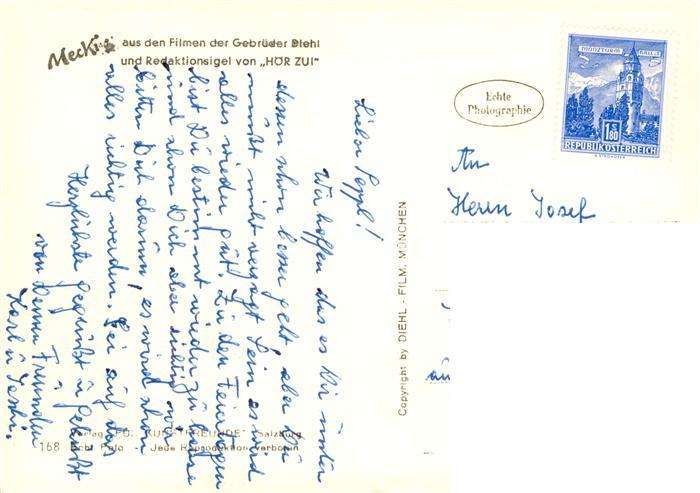 Mecki aus den Filmen der Gebrüder Diehl
und Redaktionsigel von „HÖR ZU!"
Lieber Peppi!
Wir hoffen das es Dir
dessen schon besser geht, aber Du
mußt nicht verzagt sein es wird
alles wieder gut. Zu den Feiertagen
bist Du bestimmt wieder zu Hause
und schon Dich aber richtig wir
bitten Dich darum, es wird schon
alles richtig werden. Sei auf das
Herzlichste gegrüßt u geküßt
von Deinen Freunden
Karl u
Verlag „FÜR KUNSTFREUNDE" Salzburg
168 Echt Foto - Jede Reproduktion verboten
Copyright by DIEHL - FILM, MÜNCHEN
Echte
Photographie
MÜNZTURM HALL i. T.
S 1.80 S
REPUBLIK ÖSTERREICH
An
Herrn Josef